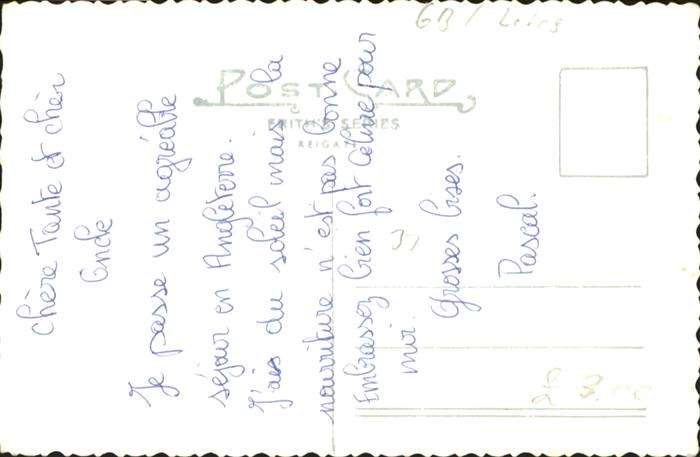 GB / Leics
POST CARD
FRITH'S SERIES
REIGATE
chère Tante et chèr
Oncle
Je passe un agréable
séjour en Angleterre.
J'ais du soleil mais la
nourriture n'est pas bonne
Embrassez bien fort Céline pour
moi.
Grosses bises.
Pascal.
£ 3.00